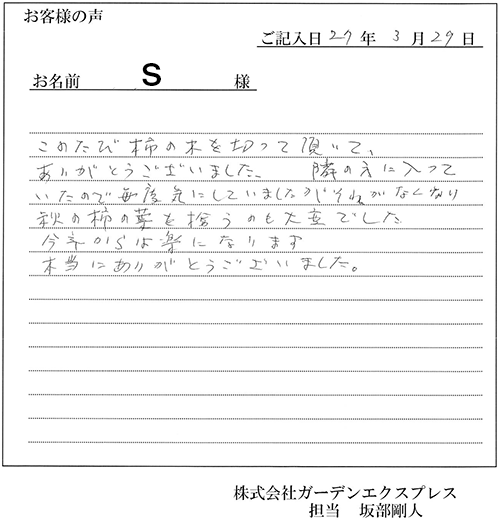 お客様の声
ご記入日 27 年 3 月 29 日
お名前 S 様
このたび柿の木を切って頂いて、
ありがとうございました、 隣の方に入って
いたので毎度気にしていましたがそれがなくなり
秋の柿の葉を拾うのも大変でした
今年からは楽になります
本当にありがとうございました。
株式会社ガーデンエクスプレス
担当 坂部剛人